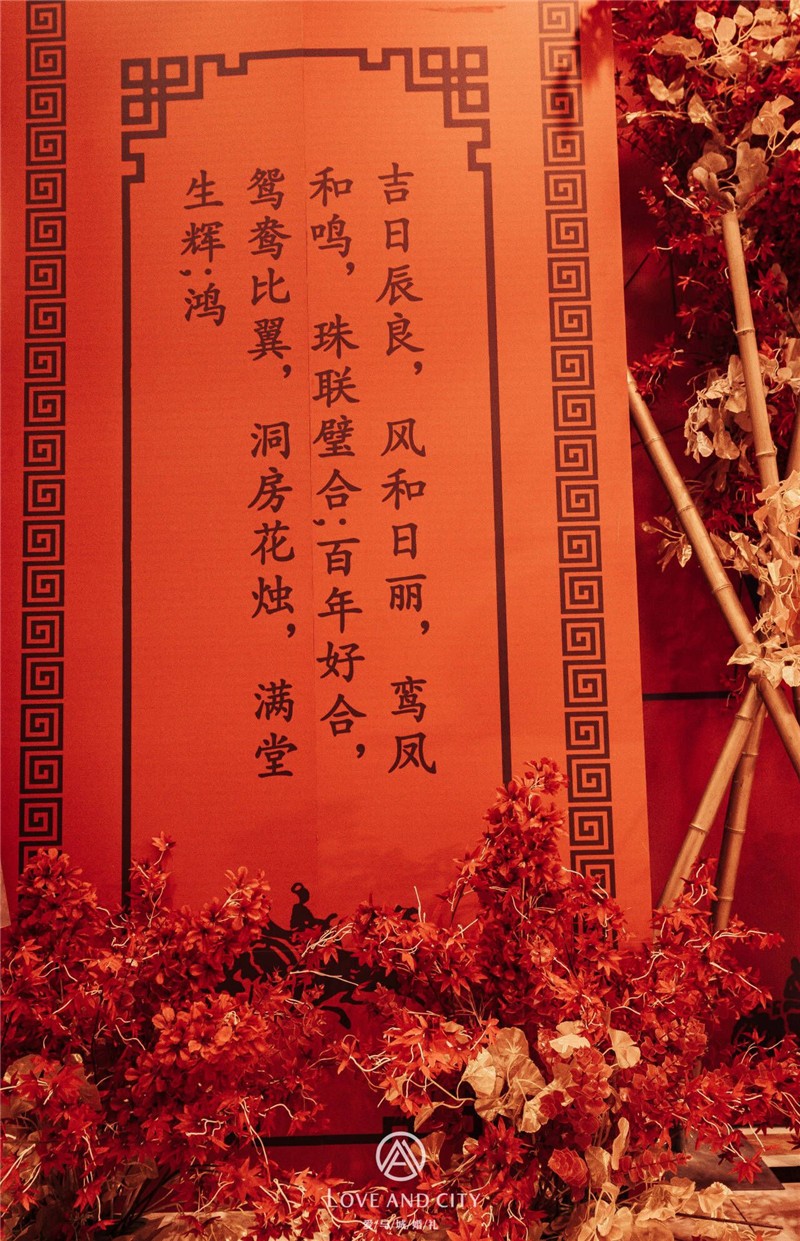 吉日辰良，风和日丽，鸾凤
和鸣，珠联璧合；百年好合，
鸳鸯比翼，洞房花烛，满堂
生辉；鸿
LOVE AND CITY
爱与城婚礼